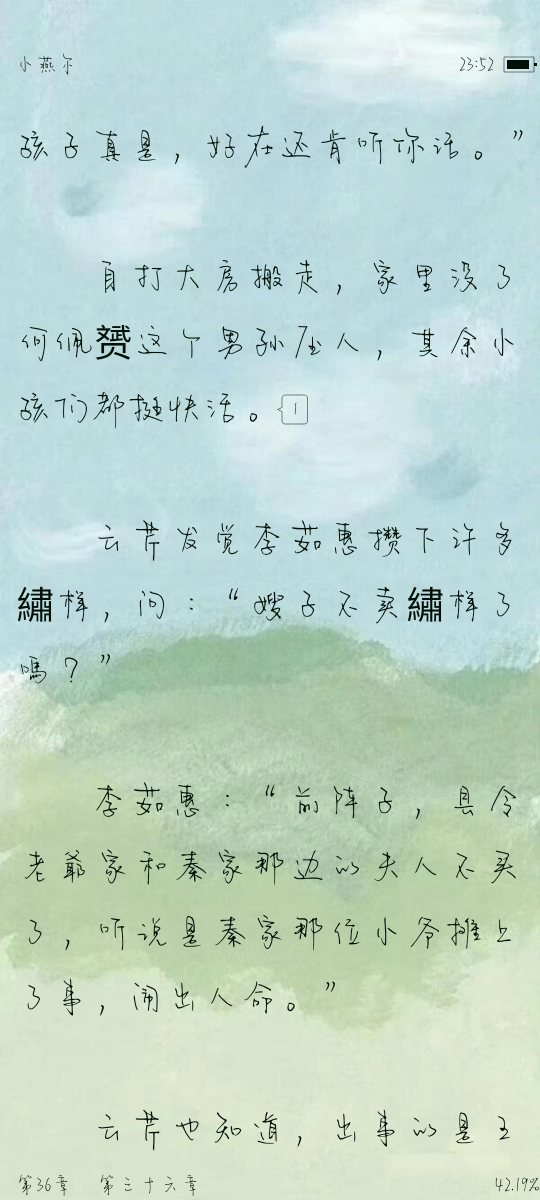 小燕尔 23:52
孩子真是，好在还肯听你话。”
自打大房搬走，家里没了
何佩赟这个男孙压人，其余小
孩们都挺快活。1
云芹发觉李茹惠攒下许多
繡样，问：“嫂子不卖繡样了
嗎？”
李茹惠：“前阵子，县令
老爺家和秦家那边的夫人不买
了，听说是秦家那位小爷摊上
了事，闹出人命。”
云芹也知道，出事的是王
第36章 第三十六章 42.19%